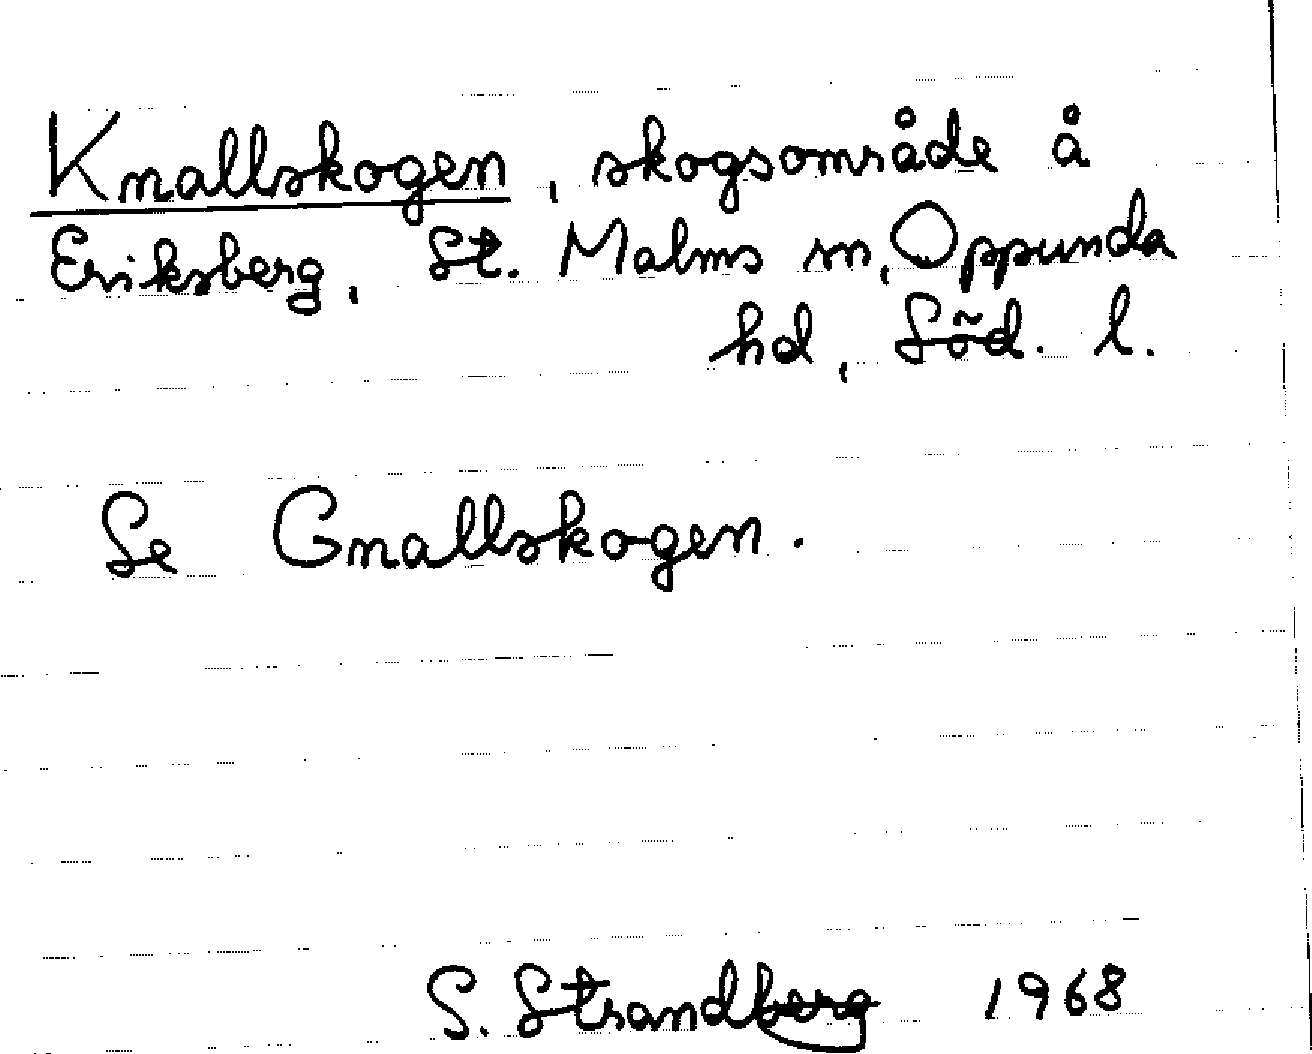 Knallskogen, skogsområde å
Eriksberg, St. Malms sn, Oppunda
hd, Söd. l.
Se Gnallskogen.
S. Strandberg 1968